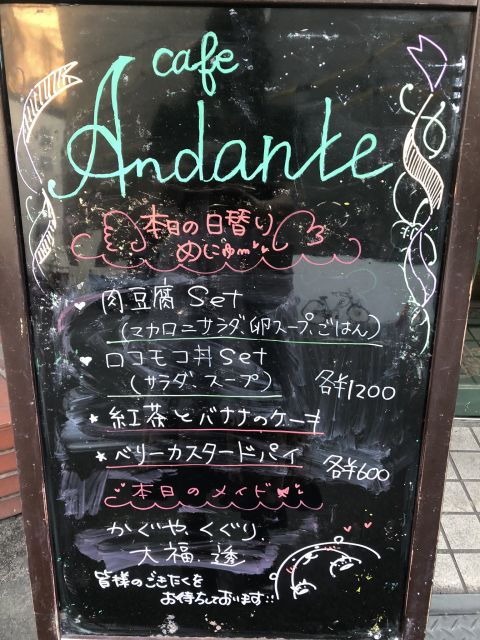 cafe
Andante
本日の日替り
めにゅm
♥ 肉豆腐 Set
(マカロニサラダ、卵スープ、ごはん)
♥ ロコモコ丼 Set
(サラダ、スープ) 各¥1200
★ 紅茶とバナナのケーキ
★ ベリーカスタードパイ 各¥600
本日のメイド
かぐや、くぐり、
大福、透
皆様のごきたくを
お待ちしております::